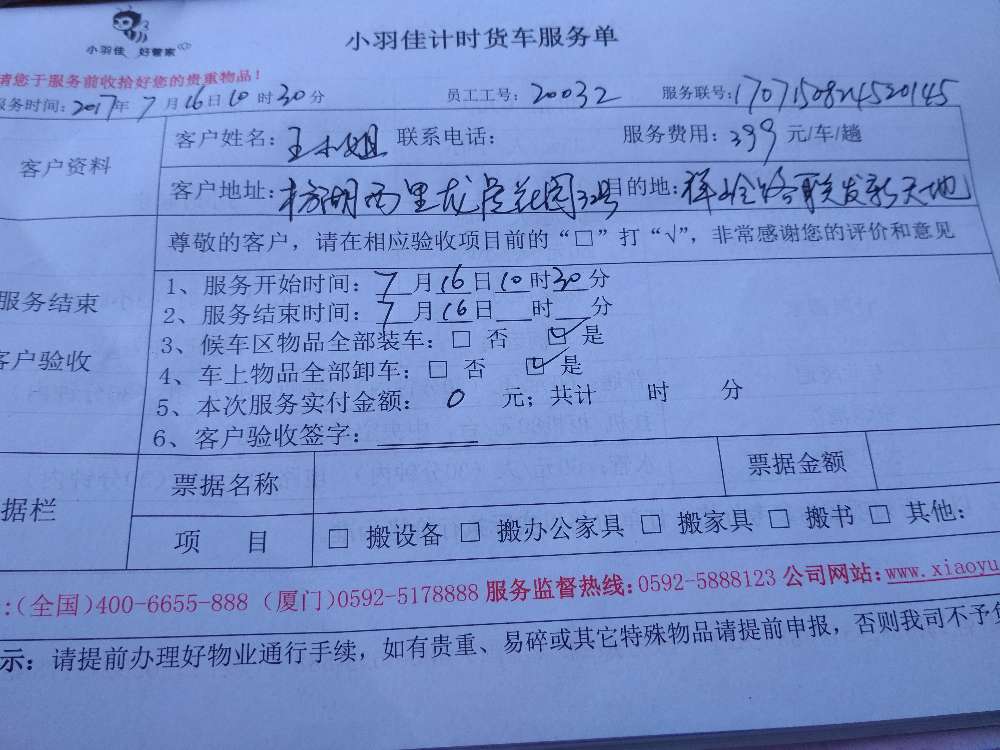 小羽佳 好管家
小羽佳计时货车服务单
请您于服务前收拾好您的贵重物品！
服务时间：2017年7月16日10时30分 员工工号：20032 服务联号：1707150824520145
客户资料
客户姓名：王小姐 联系电话： 服务费用：399元/车/趟
客户地址：槟榔西里龙虎花园32号 目的地：祥岭路联发新天地
尊敬的客户，请在相应验收项目前的“□”打“√”，非常感谢您的评价和意见
服务结束
客户验收
1、服务开始时间：7月16日10时30分
2、服务结束时间：7月16日 时 分
3、候车区物品全部装车：□ 否 ☑ 是
4、车上物品全部卸车：□ 否 ☑ 是
5、本次服务实付金额：0 元；共计 时 分
6、客户验收签字：
据栏
票据名称 票据金额
项 目 □ 搬设备 □ 搬办公家具 □ 搬家具 □ 搬书 □ 其他：
:(全国)400-6655-888 (厦门)0592-5178888 服务监督热线:0592-5888123 公司网站:www.xiaoyu
示：请提前办理好物业通行手续，如有贵重、易碎或其它特殊物品请提前申报，否则我司不予